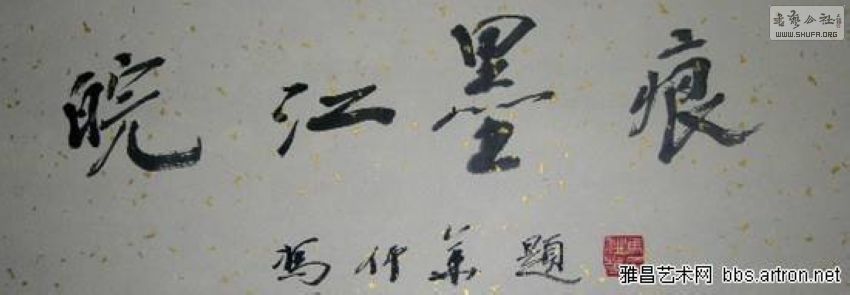 皖江墨痕
冯仲华题
书艺公社
WWW.SHUFA.ORG
雅昌艺术网 bbs.artron.net